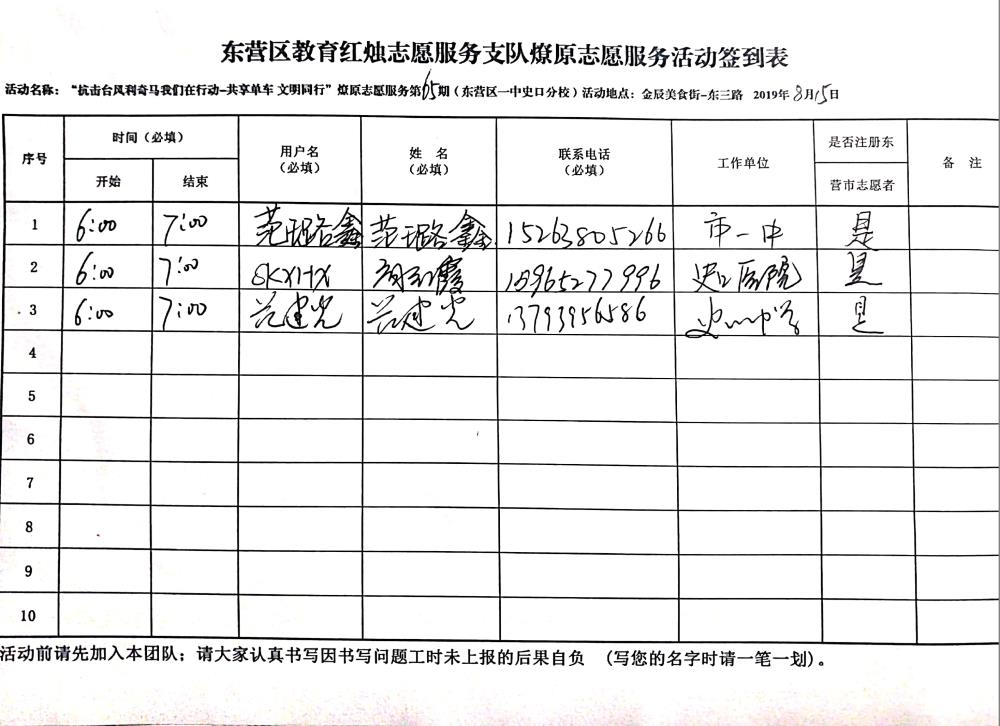 东营区教育红烛志愿服务支队燎原志愿服务活动签到表
活动名称：“抗击台风利奇马我们在行动-共享单车 文明同行”燎原志愿服务第65期（东营区一中史口分校）活动地点：金辰美食街-东三路 2019年8月15日
序号 时间（必填） 用户名（必填） 姓 名（必填） 联系电话（必填） 工作单位 是否注册东营市志愿者 备 注
开始 结束
1 6:00 7:00 范璐鑫 范璐鑫 15263805266 市一中 是
2 6:00 7:00 SKXHX 霞 15965277996 史口医院 是
3 6:00 7:00 范建光 范建光 13793956586 史口中学 是
4
5
6
7
8
9
10
活动前请先加入本团队；请大家认真书写因书写问题工时未上报的后果自负 （写您的名字时请一笔一划）。